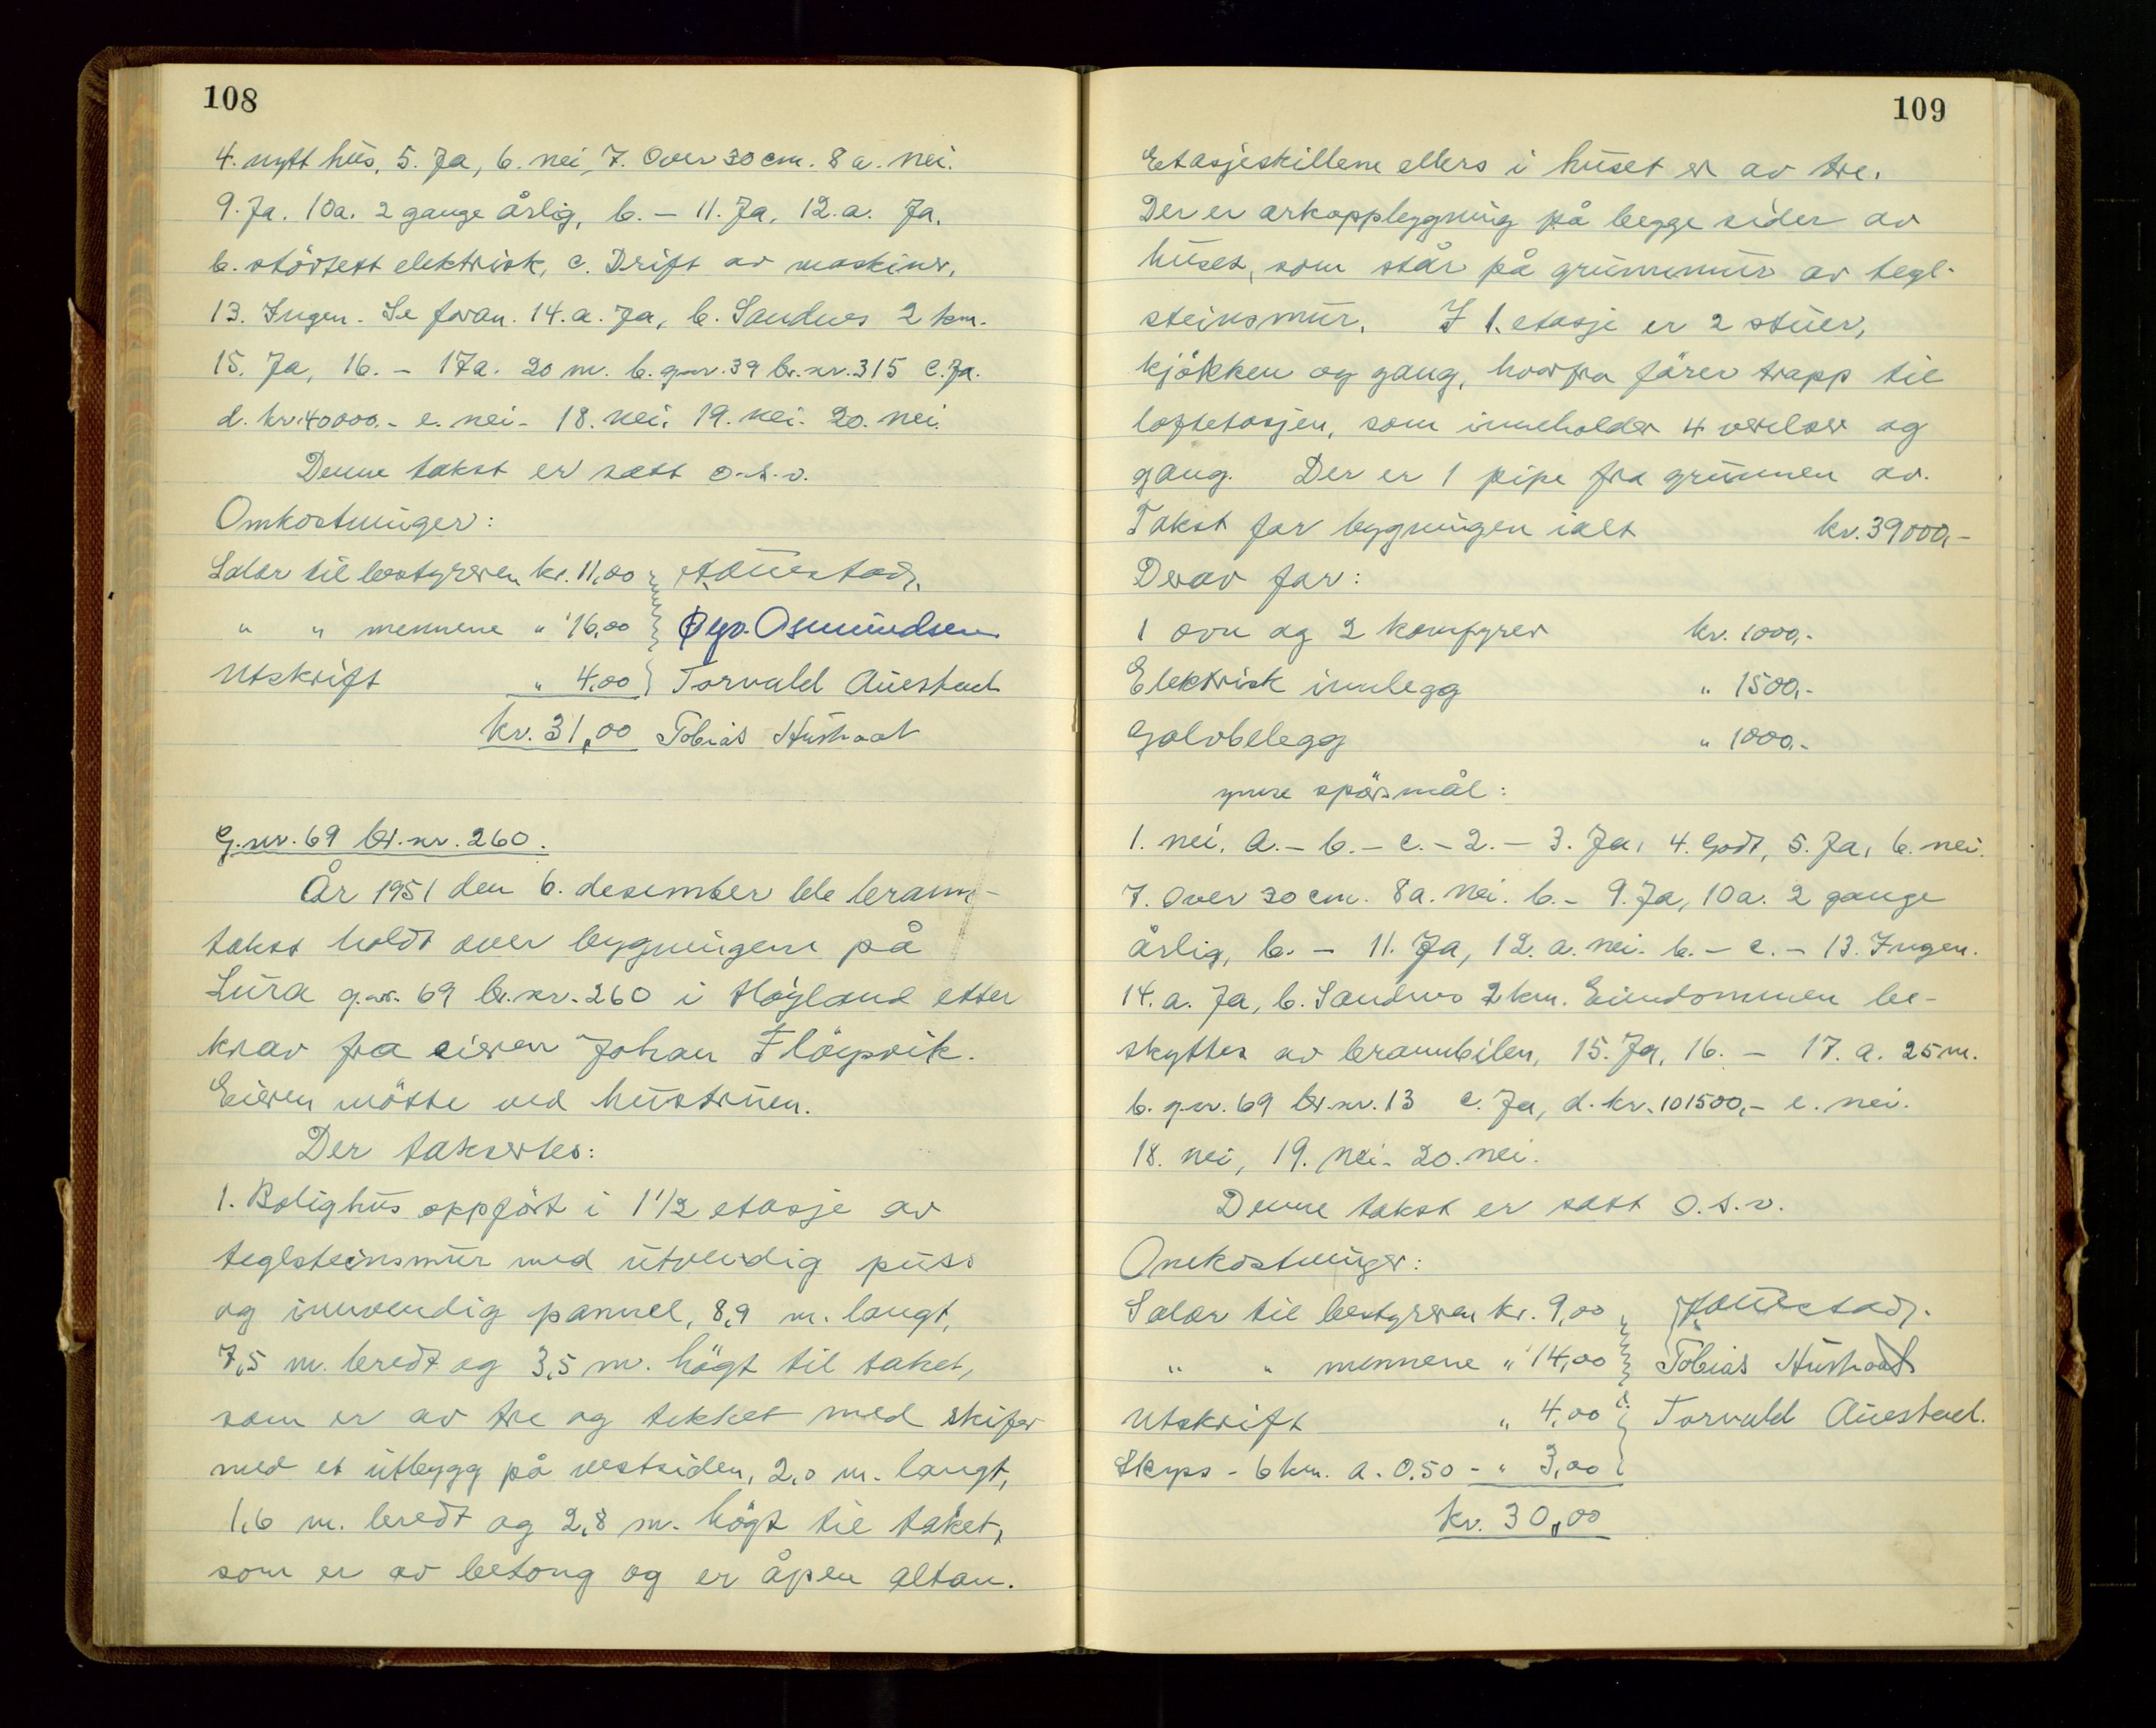 108
4. nytt hus, 5. Ja, 6. nei, 7. Over 30 cm. 8 a. nei.
9. Ja. 10a. 2 gange årlig, b. – 11. Ja, 12. a. Ja.
b. störtest elektrisk, c. Drift av maskiner,
13. Ingen. Se foran. 14. a. Ja, b. Sandnes 2 km.
15. Ja, 16. – 17a. 20 m. b. g.nr. 39 br.nr. 315 c. Ja.
d. kr. 40000.- e. nei- 18. nei. 19. nei. 20. nei.
Denne takst er satt o.s.v.
Omkostninger:
Salær til bestyreren kr. 11,00
" " mennene " 16,00 Osmundsen
Utskrift " 4,00 Torvald Auestad
kr. 31,00 Tobias
G.nr. 69 br.nr. 260.
År 1951 den 6. desember ble brann-
takst holdt over bygningene på
Lura g.nr. 69 br.nr. 260 i Höyland etter
krav fra eieren Johan
Eieren mötte ved hustruen.
Der taksertes:
1. Bolighus oppfört i 1 1/2 etasje av
teglsteinsmur med utvendig puss
og innvendig pannel, 8,9 m. langt,
7,5 m. bredt og 3,5 m. högt til taket,
som er av tre og tekket med skifer
med et utbygg på vestsiden, 2,0 m. langt,
1,6 m. bredt og 2,8 m. högt til taket,
som er av betong og er åpen altan.
109
Etasjeskillene ellers i huset er av tre.
Der er arkoppbygning på begge sider av
huset, som står på grunnmur av tegl-
steinsmur. I 1. etasje er 2 stuer,
kjökken og gang, hvorfra förer trapp til
loftetasjen, som inneholder 4 værelser og
gang. Der er 1 pipe fra grunnen av.
Takst for bygningen ialt kr. 39000,-
Derav for:
1 ovn og 2 komfyrer kr. 1000,-
Elektrisk innlegg " 1500,-
Golvbelegg " 1000,-
ymse spörsmål:
1. nei, a. – b. – c. – 2. – 3. Ja, 4. Godt, 5. Ja, 6. nei.
7. Over 30 cm. 8a. nei. b. – 9. Ja, 10a. 2 gange
årlig, b. – 11. Ja, 12. a. nei. b. – c. – 13. Ingen.
14. a. Ja, b. Sandnes 2 km. Eiendommen be-
skyttes av brannbilen, 15. Ja, 16. – 17. a. 25 m.
b. g.nr. 69 br.nr. 13 c. Ja, d. kr. 101500,- e. nei.
18. nei, 19. nei. 20. nei.
Denne takst er satt o.s.v.
Omkostninger:
Salær til bestyreren kr. 9,00
" " mennene " 14,00 Tobias
Utskrift " 4,00 Torvald Auestad.
Skyss - 6 km. a. 0.50 - " 3,00
kr. 30,00